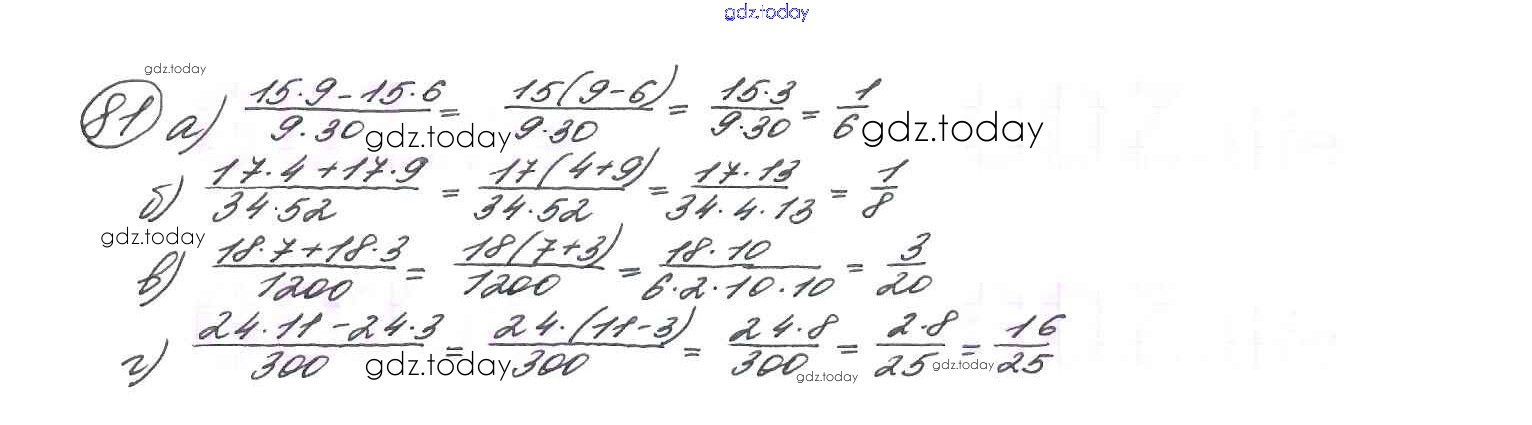 gdz.today
gdz.today
81 а) (15·9-15·6)/(9·30) = 15(9-6)/(9·30) = (15·3)/(9·30) = 1/6
gdz.today gdz.today
б) (17·4+17·9)/(34·52) = 17(4+9)/(34·52) = (17·13)/(34·4·13) = 1/8
gdz.today
в) (18·7+18·3)/1200 = 18(7+3)/1200 = (18·10)/(6·2·10·10) = 3/20
г) (24·11-24·3)/300 = 24·(11-3)/300 = (24·8)/300 = (2·8)/25 = 16/25
gdz.today gdz.today gdz.today